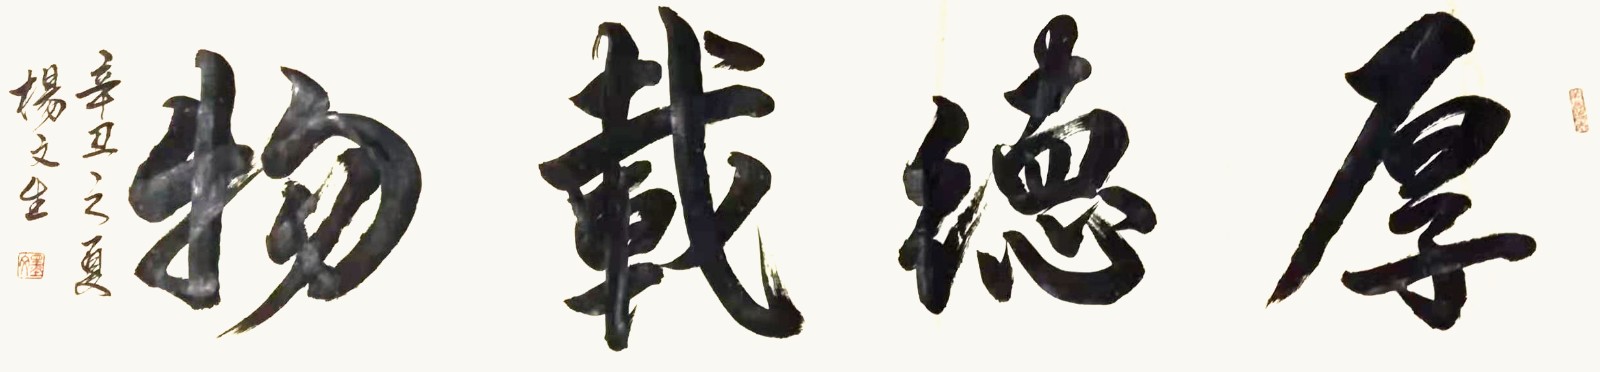 厚德載物
辛丑之夏
楊文生